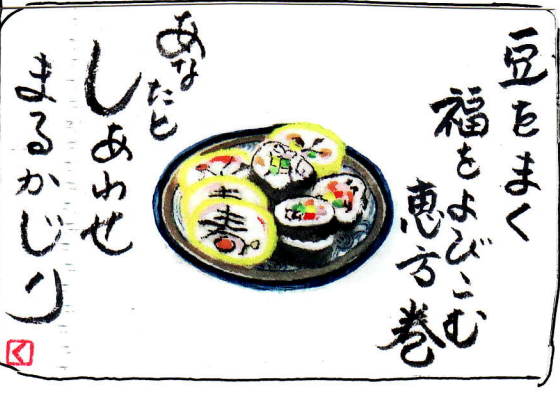 豆をまく
福をよびこむ
恵方巻
あなたと
しあわせ
まるかじり
く